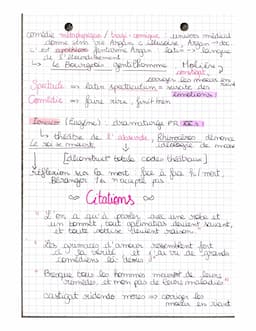 comédie métaphysique / tragi-comique univers médical
donne sens vie Argan
de l'étourdissement
↳ Le Bourgeois gentilhomme Molière
castigat,
corriges les moeurs en
Spectacle => latin spectaculum = suscite des
émotions!
Comédie => faire rire, fur
Ionesco (Eugène): dramaturge FR
↳ théâtre de l'absurde, Rhinocéros dénonce
Le roi se meurt idéologie de masse
[déconstruit totale codes théâtraux]
réflexion sur la mort face à
Béranger 1er n'accepte pas
∞ Citations ∞
"L'on a qu'à parler avec une robe et
un bonnet, tout galimatias devient savant,
et toute sottise devient raison."
"Les grimaces d'amour ressemblent fort
à la vérité et j'ai vu de grands
comédiens là-dessus"
"Presque tous les hommes meurent de leurs
remèdes et non pas de leurs maladies"
castigat ridendo mores => corriges les
moeurs en riant